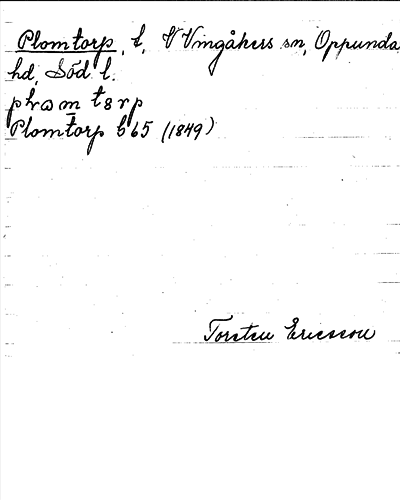 Plomtorp, t, V Vingåkers sn, Oppunda
hd, Söd l.
Plomtorp b65 (1849)
Torsten Ericsson